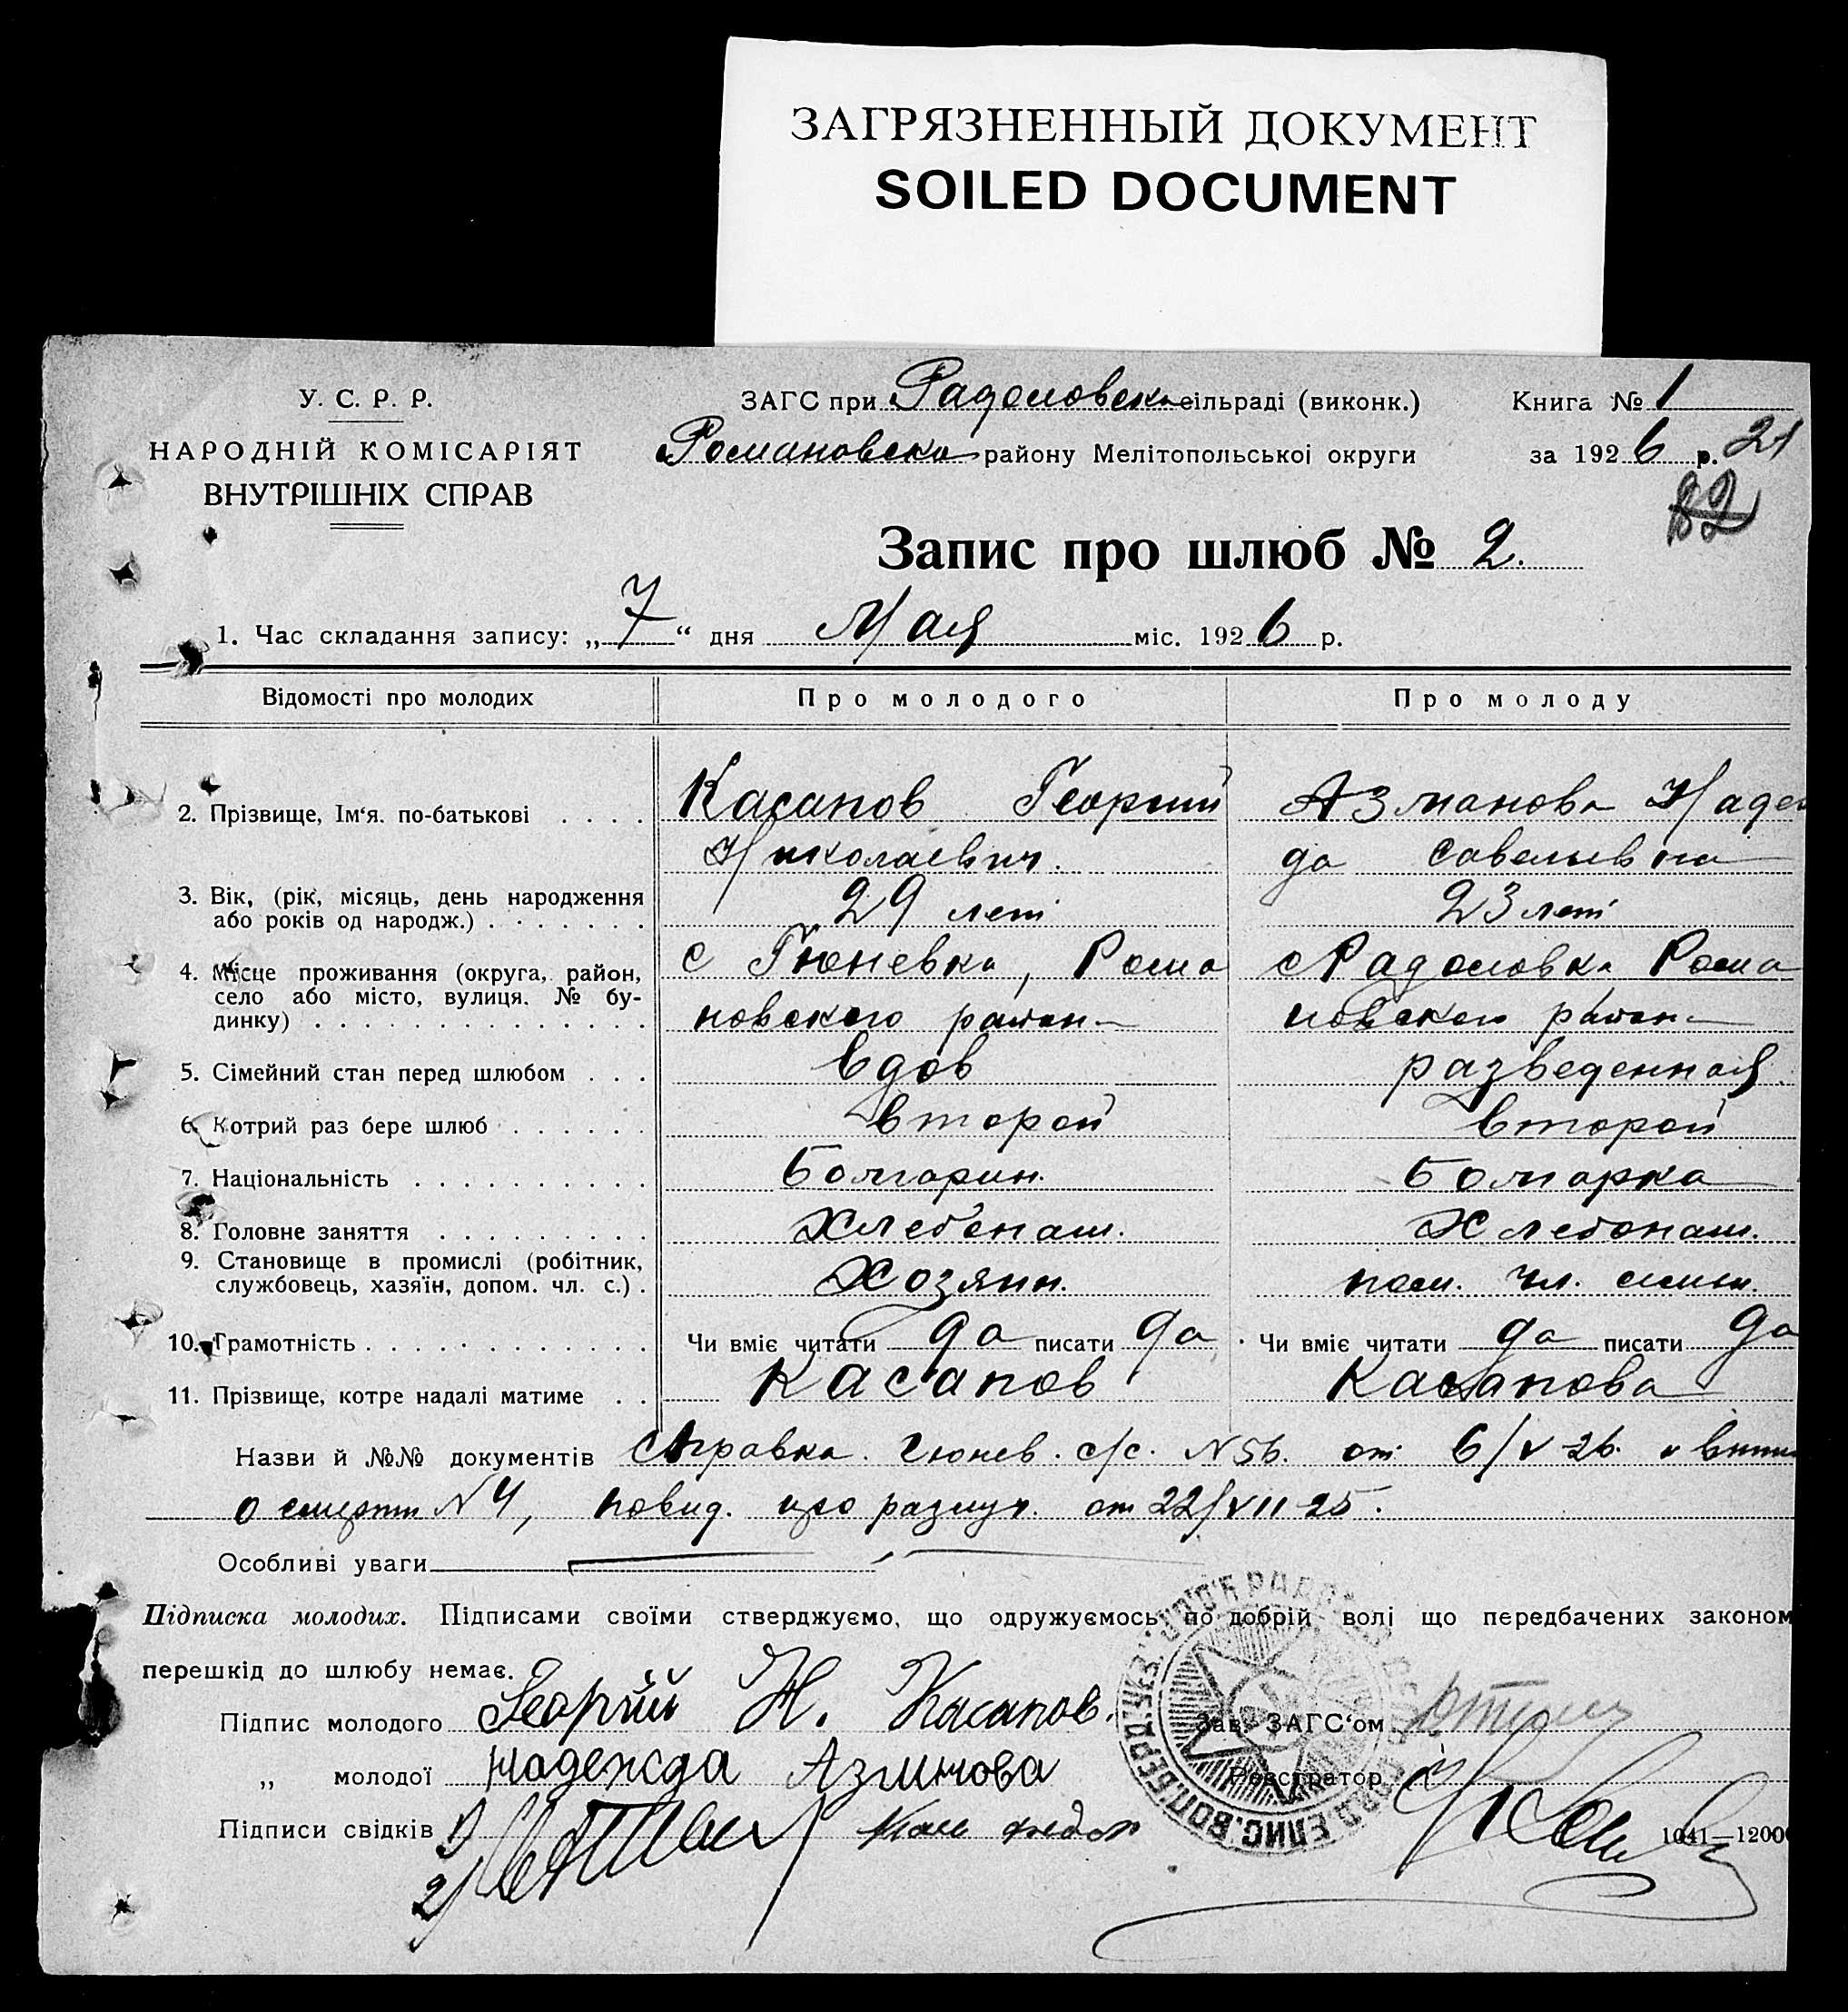 ЗАГРЯЗНЕННЫЙ ДОКУМЕНТ
SOILED DOCUMENT
У. С. Р. Р.
НАРОДНІЙ КОМІСАРІЯТ
ВНУТРІШНІХ СПРАВ
ЗАГС при Радоловск сільраді (виконк.)
Романовско району Мелітопольської округи
Книга № 1
за 1926 р. 21
22
Запис про шлюб № 2.
1. Час складання запису: „7“ дня Мая міс. 1926 р.
Відомості про молодих Про молодого Про молоду
2. Прізвище, Ім‘я. по-батькові . . . . Касапов Георгий Азманова Надеж
Николаевич. да Савельевна
3. Вік, (рік, місяць, день народження
або років од народж.) . . . . . . . 29 лет 23 лет
4. Місце проживання (округа, район, с Гюневка, Рома с Радоловка Рома
село або місто, вулиця. № бу-
динку) . . . . . . . . . . . . . . . новского район новского район
5. Сімейний стан перед шлюбом . . . вдов разведенная.
6. Котрий раз бере шлюб . . . . . . второй второй
7. Національність . . . . . . . . . . Болгарин. Болгарка
8. Головне заняття . . . . . . . . . Хлебопаш. Хлебопаш.
9. Становище в промислі (робітник,
службовець, хазяїн, допом. чл. с.) . Хозяин. пом. чл. семьи.
10. Грамотність . . . . . . . . . . . . Чи вміє читати да писати да . Чи вміє читати да писати да
11. Прізвище, котре надалі матиме . . Касапов Касапова
Назви й №№ документів Справка. Гюнев. с/с. N 56. от 6/V-26. и
о смерти N 4, повид. про разлуч. от 22/VII-25.
Особливі уваги
Підписка молодих. Підписами своїми стверджуємо, що одружуємось по добрій волі що передбачених законом
перешкід до шлюбу немає.
Підпис молодого Георгий Н. Касапов. Зав. ЗАГС‘ом
„ молодої Надежда Азманова Реєстратор
Підписи свідків 1)
2)
1041—12000